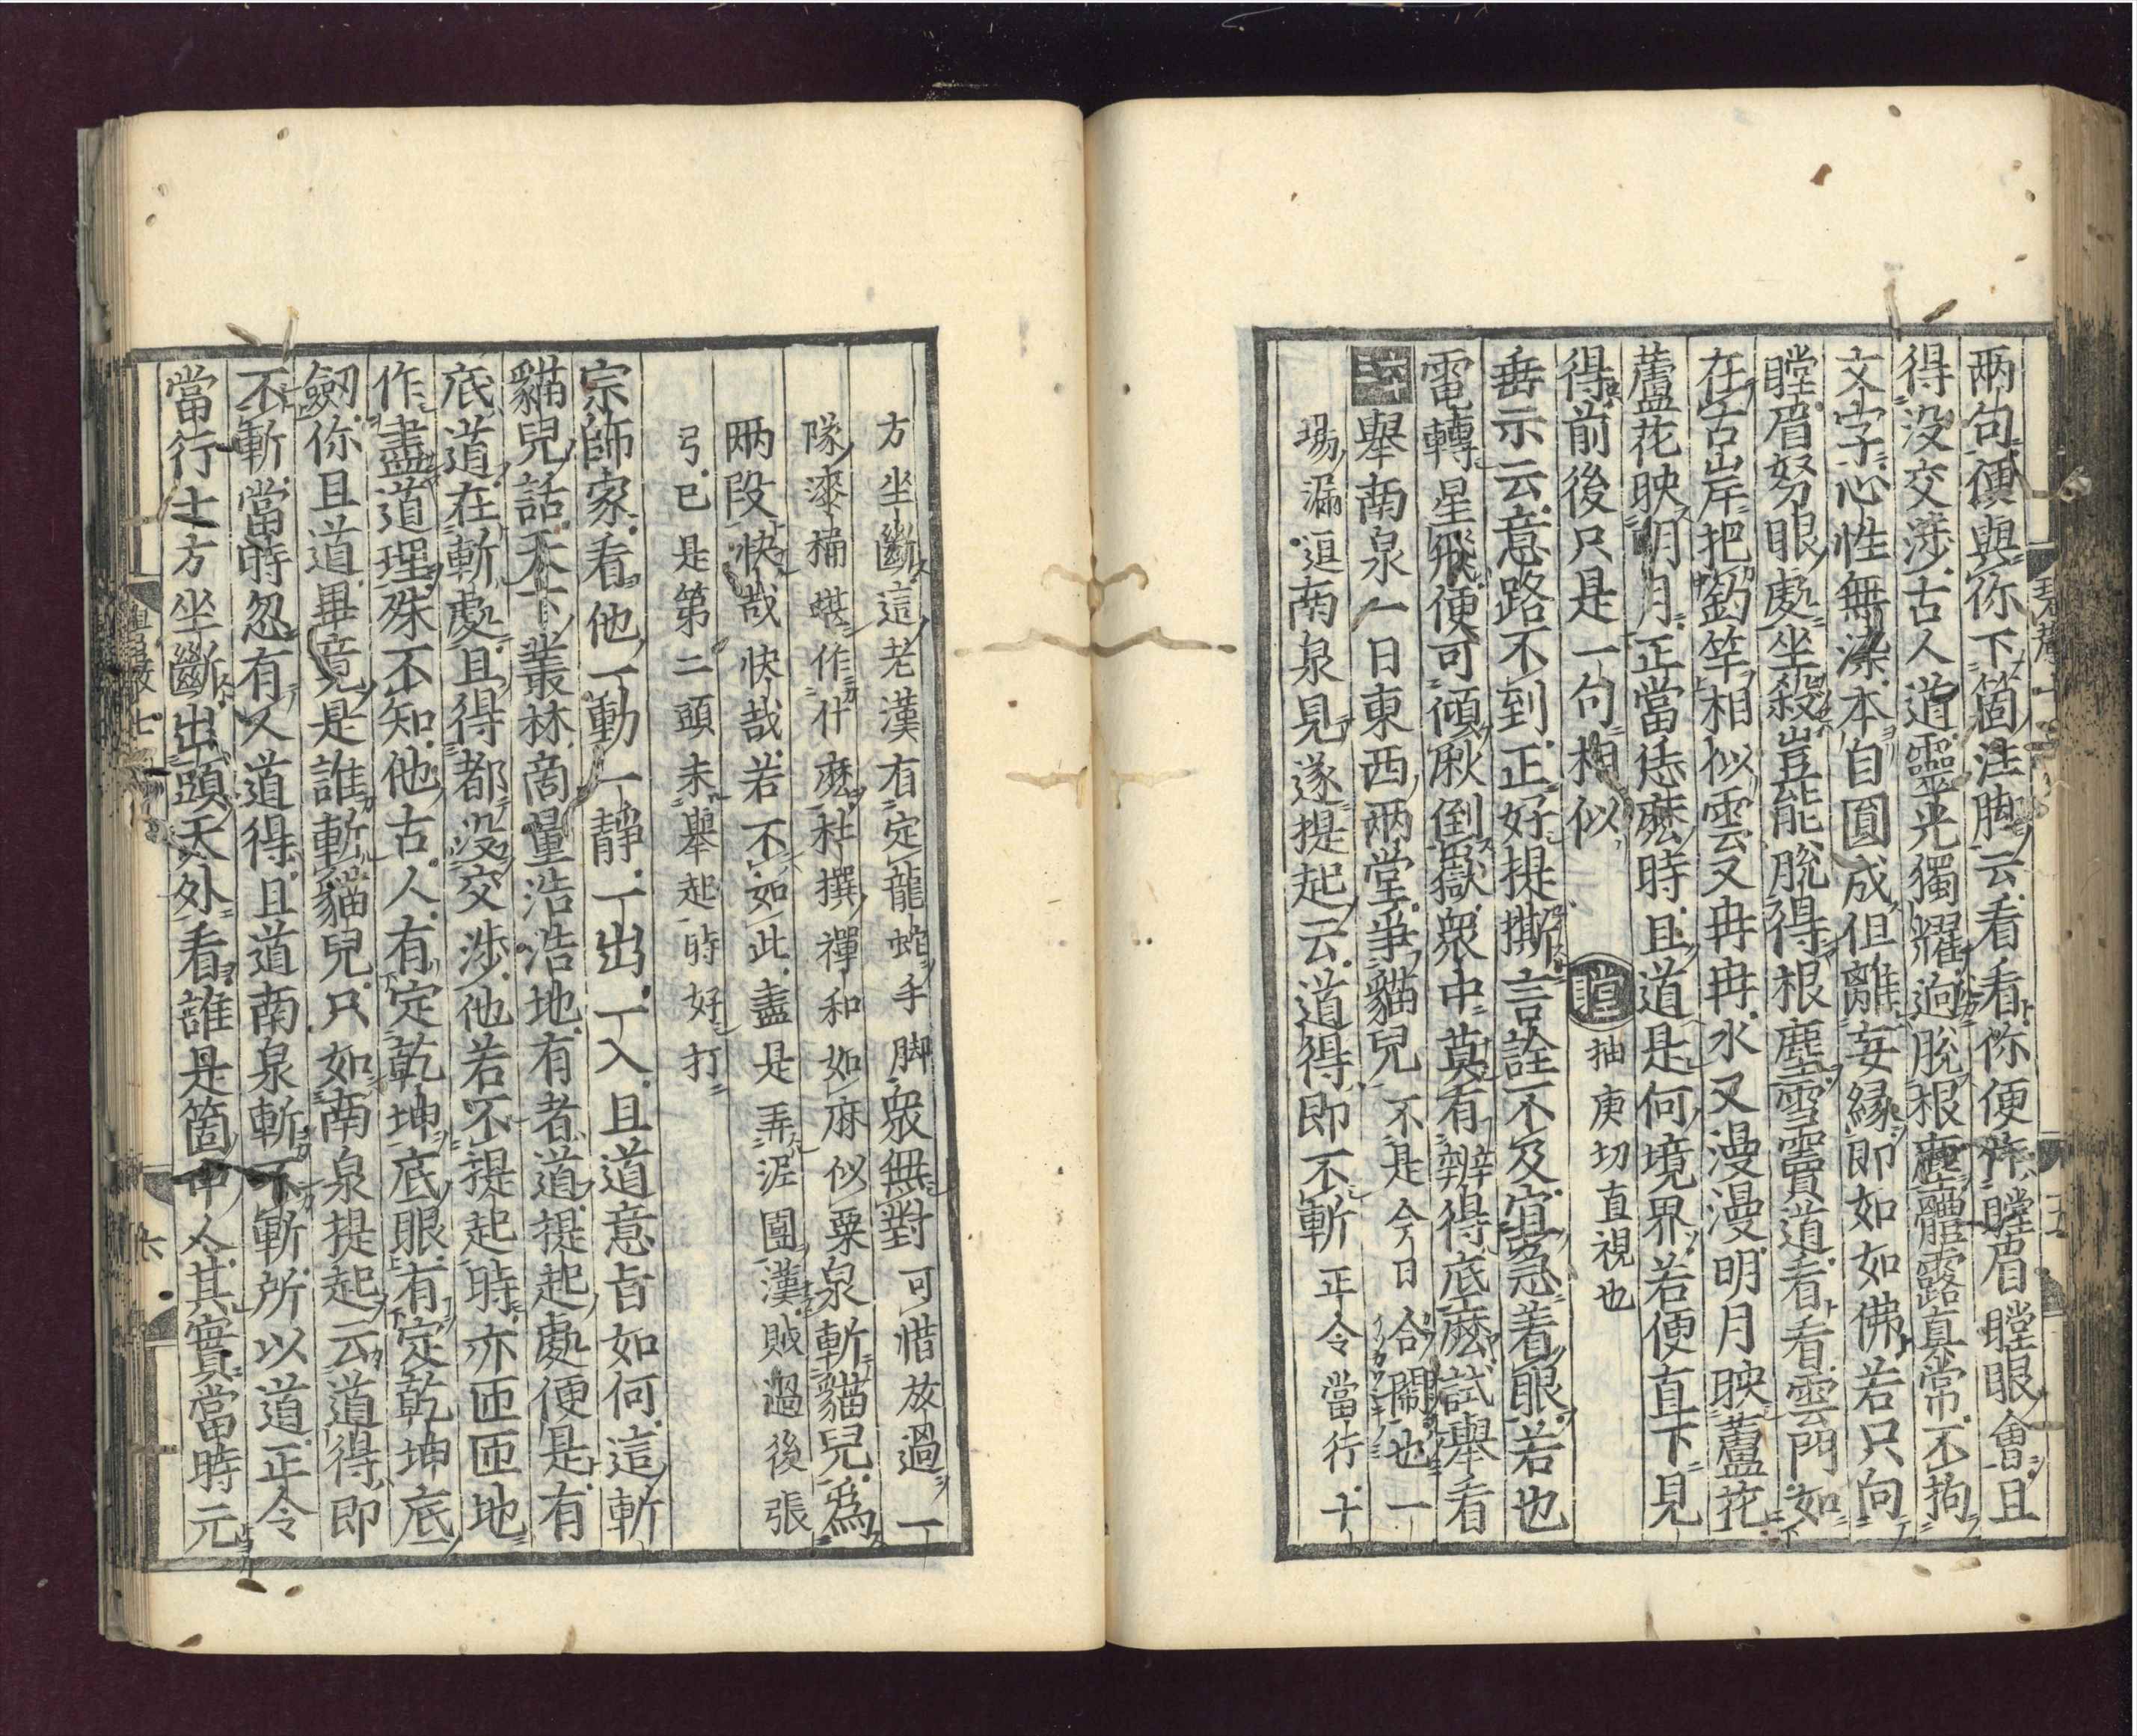 兩句便與你下箇注脚云看看你便作瞠眉瞠眼會且
得没交渉古人道靈光獨耀逈脫根塵體露真常不拘
文字心性無染本自圓成但離妄緣即如如佛若只向
瞠眉努眼處坐殺豈能脫得根塵雪竇道看看雲門如
在古岸把釣竿相似雲又冉冉水又漫漫明月映蘆花
蘆花映明月正當恁麽時且道是何境界若便直下見
得前後只是一句相似 瞠 抽庚切直視也
垂示云意路不到正好提撕言詮不及宜急着眼若也
電轉星飛便可傾湫倒嶽衆中莫有辨得底麽試舉看
舉南泉一日東西兩堂爭貓兒 不是今日合閙也一
場漏逗 南泉見遂提起云道得即不斬 正令當行十
方坐斷這老漢有定龍蛇手脚 衆無對 可惜放過一
隊漆桶堪作什麽杜撰禪和如麻似粟 泉斬貓兒爲
兩段 快哉快哉若不如此盡是弄泥團漢賊過後張
弓已是第二頭未舉起時好打
宗師家看他一動一靜一出一入且道意旨如何這斬
貓兒話天下叢林商量浩浩地有者道提起處便是有
底道在斬處且得都没交渉他若不提起時亦匝匝地
作盡道理殊不知他古人有定乾坤底眼有定乾坤底
劒你且道畢竟是誰斬貓兒只如南泉提起云道得即
不斬當時忽有人道得且道南泉斬不斬所以道正令
當行十方坐斷出頭天外看誰是箇中人其實當時元
六